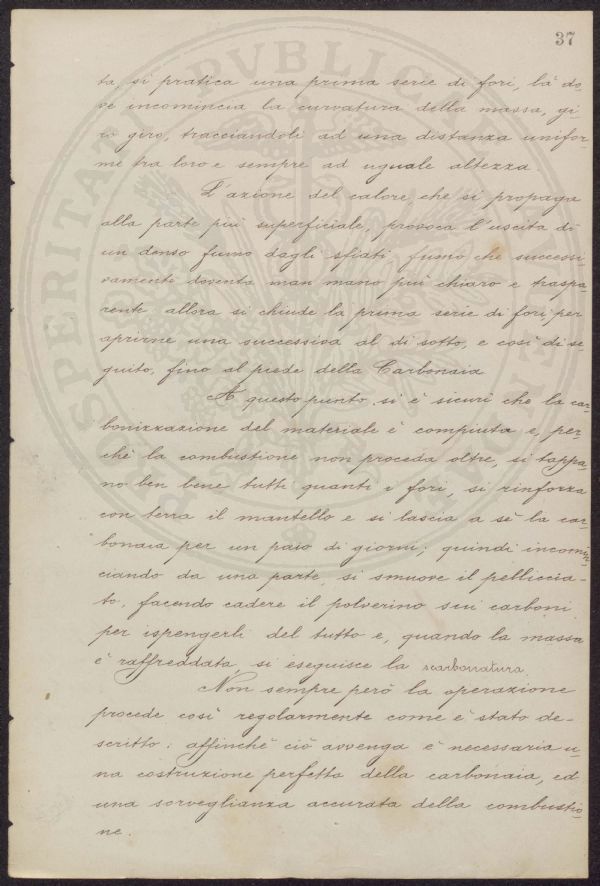 37
ta, si pratica una prima serie di fori, là do_
ve incomincia la curvatura della massa, gi_
ro giro, tracciandoli ad una distanza unifor_
me tra loro e sempre ad uguale altezza.
L'azione del calore, che si propaga
alla parte più superficiale, provoca l'uscita di
un denso fumo dagli sfiati fumo che successi_
vamenti doventa man mano più chiaro e traspa_
rente allora si chiude la prima serie di fori, per
aprirne una successiva al di sotto, e così di se_
guito, fino al piede della Carbonaia
A questo punto, si è sicuri che la car_
bonizzazione del materiale è compiuta e, per_
chè la combustione non proceda oltre, si tappa_
no ben bene tutti quanti i fori, si rinforza
con terra il mantello e si lascia a sè la car_
bonaia per un paio di giorni; quindi incomin_
ciando da una parte, si smuove il pelliccia_
to, facendo cadere il polverino sui carboni
per ispengerli del tutto e, quando la massa
è raffreddata, si eseguisce la scarbonatura.
Non sempre però la operazione
procede così regolarmente come è stato de_
scritto: affinchè ciò avvenga è necessaria u_
na costruzione perfetta della carbonaia, ed
una sorveglianza accurata della combustio_
ne.
PVBLICA
PROSPERITATI